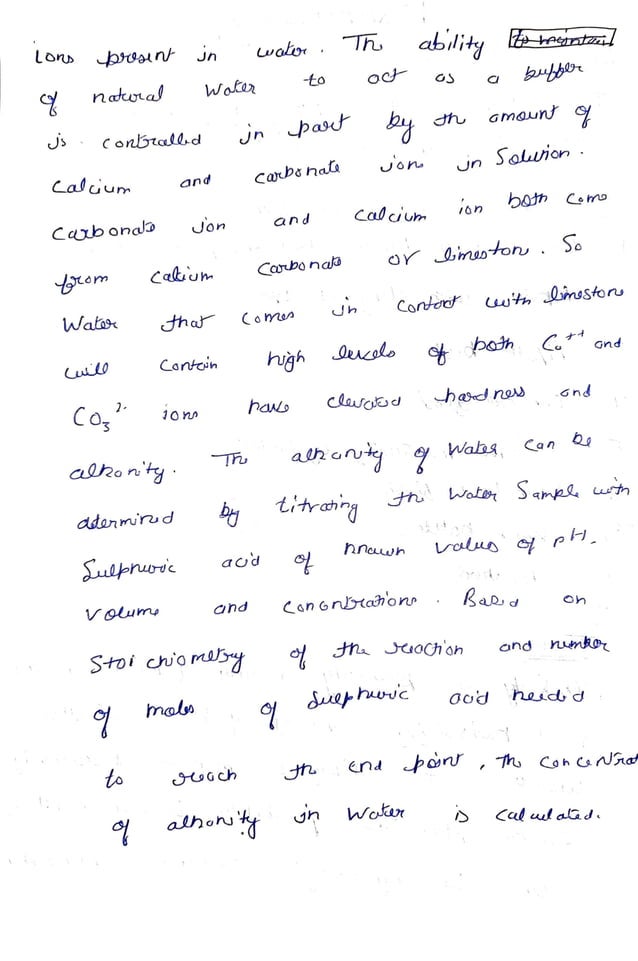 ions present in water. The ability to maintain
of natural water to act as a buffer
is controlled in part by the amount of
Calcium and carbonate ions in Solution.
Carbonate ion and calcium ion both come
from calcium carbonate or limeston. So
Water that comes in contact with limestone
will contain high levels of both Ca++ and
CO3 2- ions have elevated hardness and
alkanity. The alkanity of Water can be
determined by titrating the Water Sample with
Sulphuric acid of known values of pH.
Volume and concentrations. Based on
Stoichiometry of the reaction and number
of moles of Sulphuric acid needed
to reach the end point, The concentrat
of alkanity in Water is calculated.